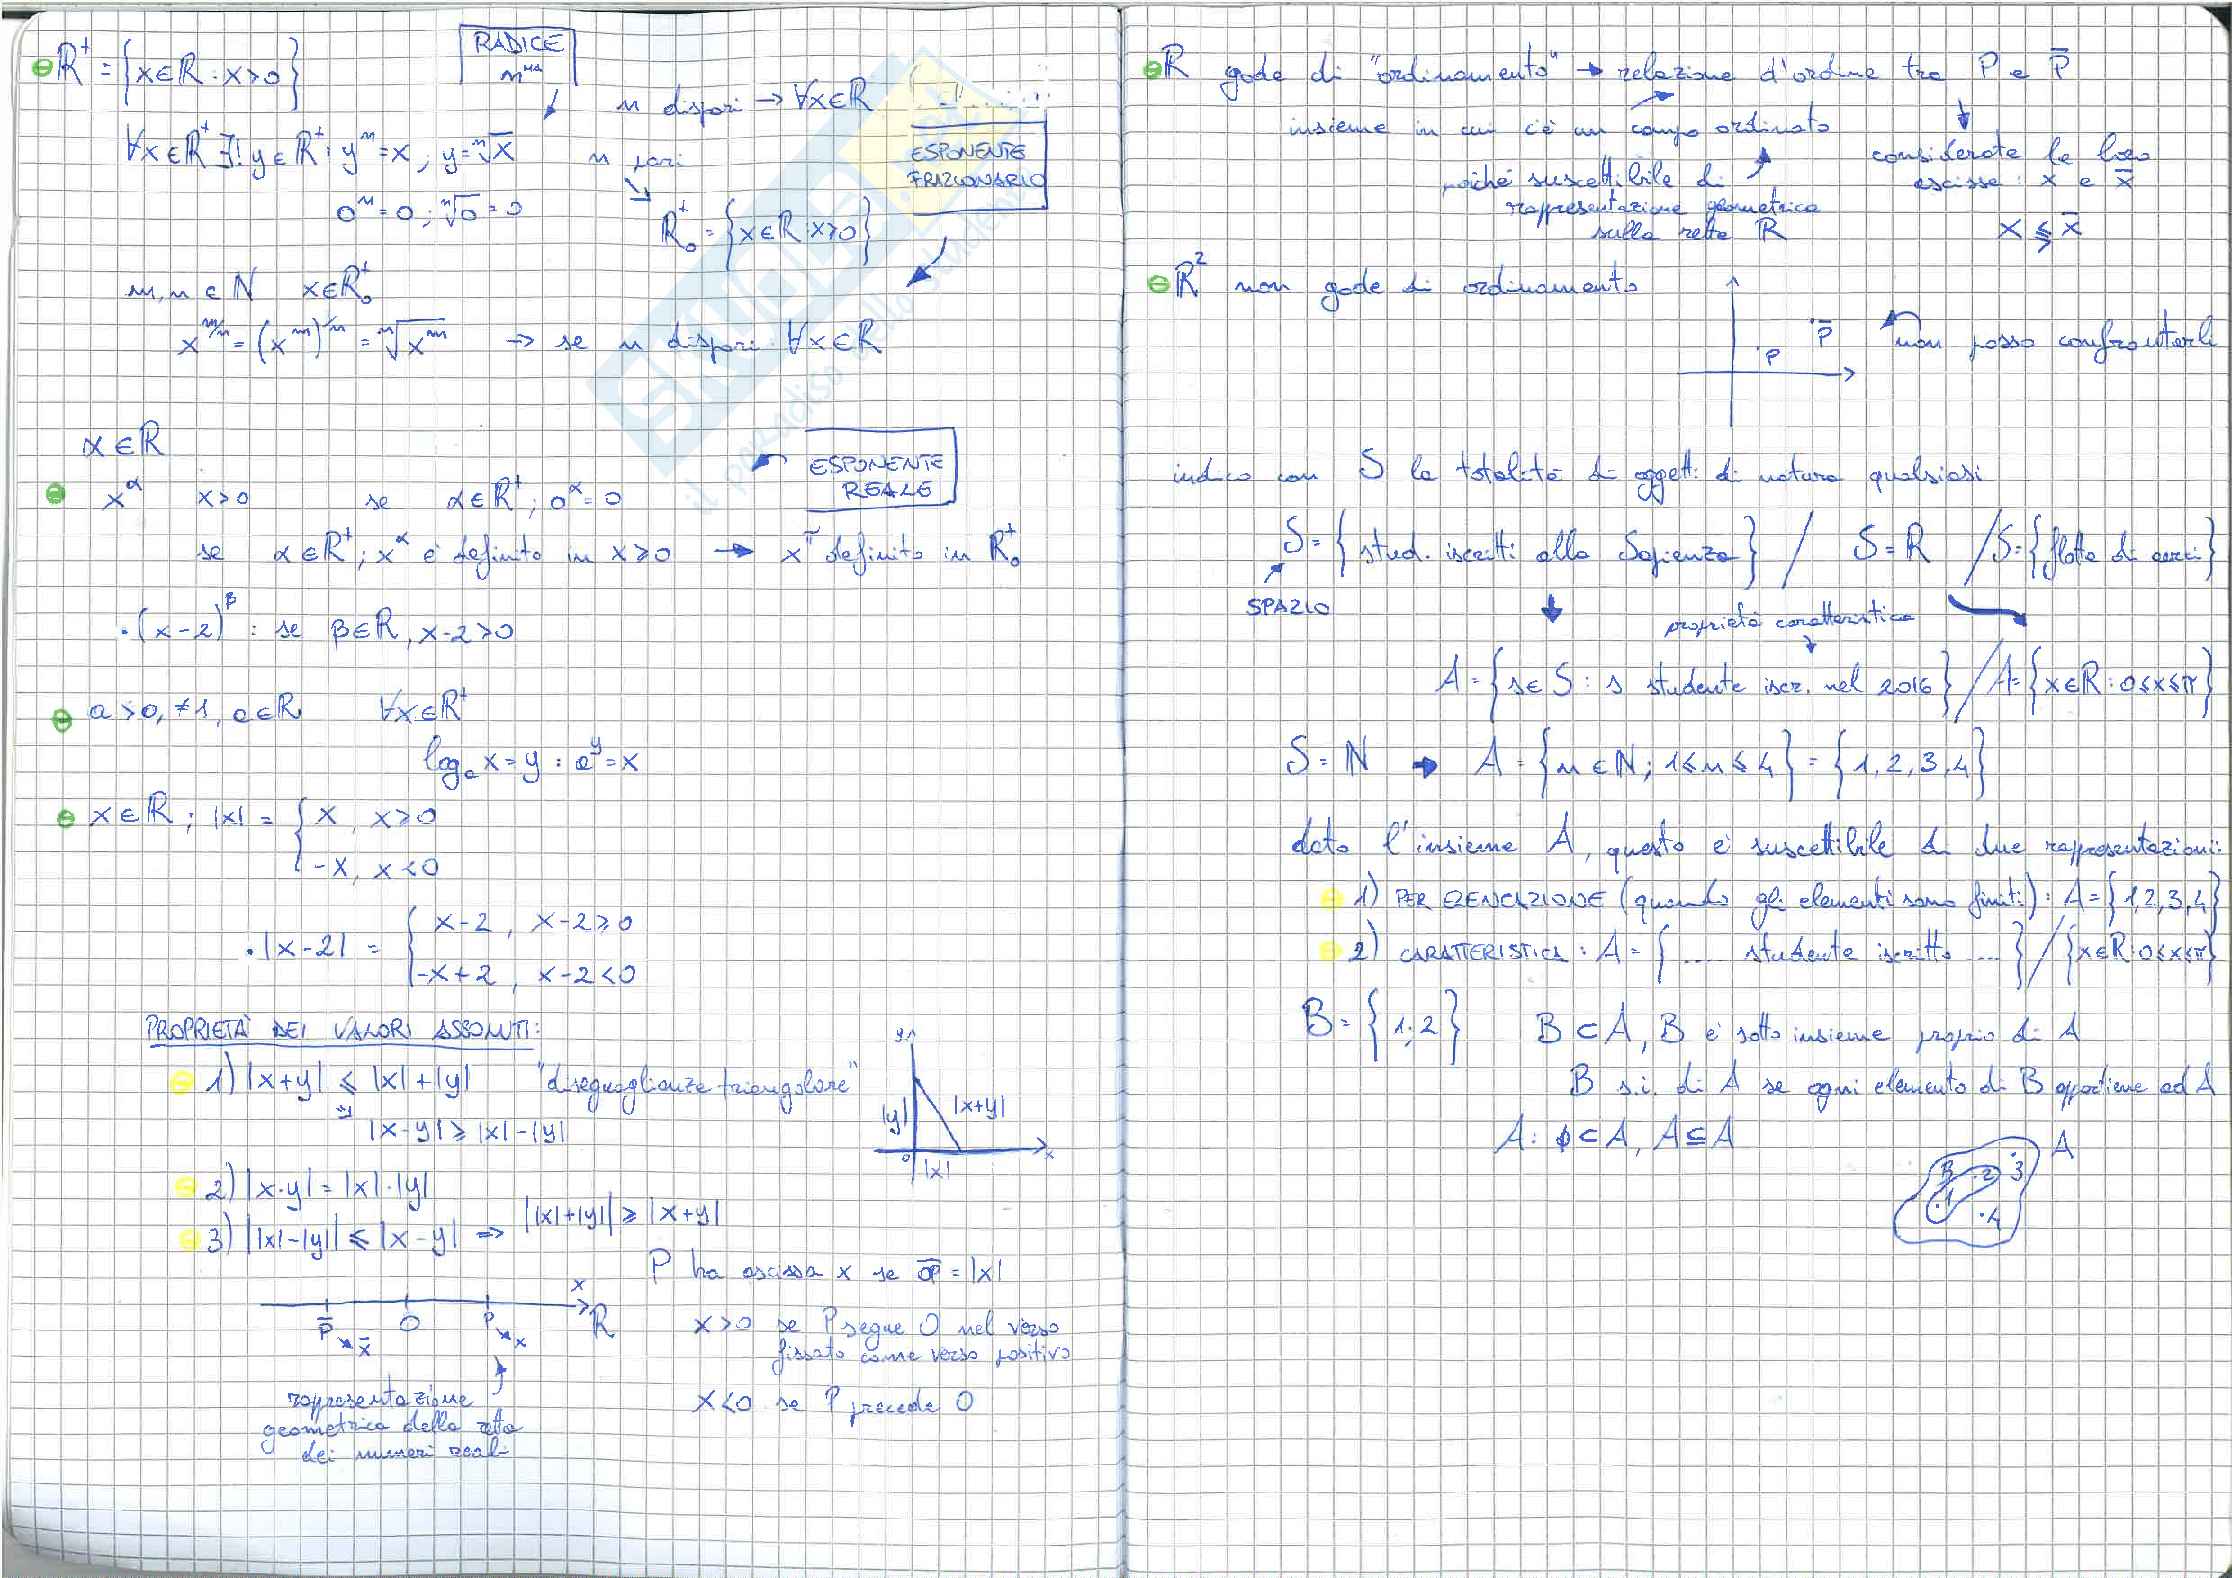 R⁺ = {x∈R : x>0}
RADICE
nᵐᵃ
n dispari → ∀x∈R
∀x∈R⁺ ∃! y∈R⁺ : yⁿ=x ; y=ⁿ√x
n pari
ESPONENTE
FRAZIONARIO
0ⁿ=0 ; ⁿ√0=0
R₀⁺ = {x∈R : x≥0}
m,n ∈ N x∈R₀⁺
x^(m/n) = (x^m)^(1/n) = ⁿ√x^m → se n dispari ∀x∈R
α∈R
ESPONENTE
REALE
x^α x>0 se α∈R⁺ ; 0^α=0
se α∈R⁺ ; x^α è definito in x≥0 → x^π definito in R₀⁺
·(x-2)^β : se β∈R, x-2>0
a>0, ≠1, a∈R ∀x∈R⁺
logₐx=y : a^y=x
x∈R ; |x| = { x, x≥0
-x, x<0
·|x-2| = { x-2, x-2≥0
-x+2, x-2<0
PROPRIETÀ DEI VALORI ASSOLUTI:
1) |x+y| ≤ |x|+|y| "diseguaglianza triangolare"
|x-y| ≥ |x|-|y|
y
|y| |x+y|
0 |x| x
2) |x·y| = |x|·|y|
3) ||x|-|y|| ≤ |x-y| ⇒ ||x|+|y|| ≥ |x+y|
P ha ascissa x se OP = |x|
x
P̄ O P R
x̄ x
x>0 se P segue O nel verso
fissato come verso positivo
x<0 se P precede O
rappresentazione
geometrica della retta
dei numeri reali
R gode di "ordinamento" → relazione d'ordine tra P e P̄
insieme in cui c'è un campo ordinato
poiché suscettibile di
rappresentazione geometrica
sulla retta R
considerate le loro
ascisse: x e x̄
x ≶ x̄
R² non gode di ordinamento
P̄
P
non posso confrontarli
indico con S la totalità di oggetti di natura qualsiasi
S={stud. iscritti alla Sapienza} / S=R / S={flotta di aerei}
SPAZIO
proprietà caratteristica
A={s∈S : s studente iscr. nel 2016} / A={x∈R : 0≤x≤π}
S=N → A={n∈N ; 1≤n≤4} = {1,2,3,4}
dato l'insieme A, questo è suscettibile di due rappresentazioni:
1) PER ELENCAZIONE (quando gli elementi sono finiti) : A={1,2,3,4}
2) CARATTERISTICA : A={.... studente iscritto ...} / {x∈R : 0≤x≤π}
B={1;2} B⊂A, B è sotto insieme proprio di A
B s.i. di A se ogni elemento di B appartiene ad A
A: ϕ⊂A, A⊆A
A
B ·2 ·3
·1 ·4